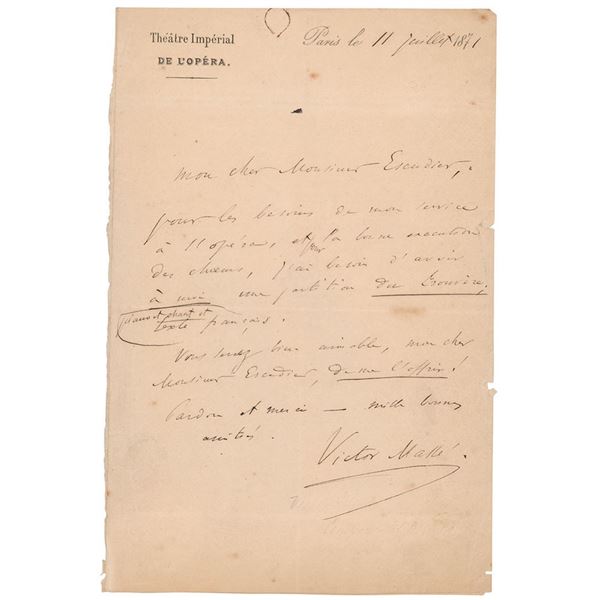 Théâtre Impérial
DE L'OPÉRA.
Paris le 11 Juillet 1871
Mon cher Monsieur Escudier,
pour les besoins de mon service
à l'opéra, et pour la bonne exécution
des chœurs, j'ai besoin d'avoir
à moi une partition du Trouvère,
piano et chant et
texte français.
Vous seriez bien aimable, mon cher
Monsieur Escudier, de me l'offrir !
Pardon et merci — mille bonnes
amitiés.
Victor Massé.